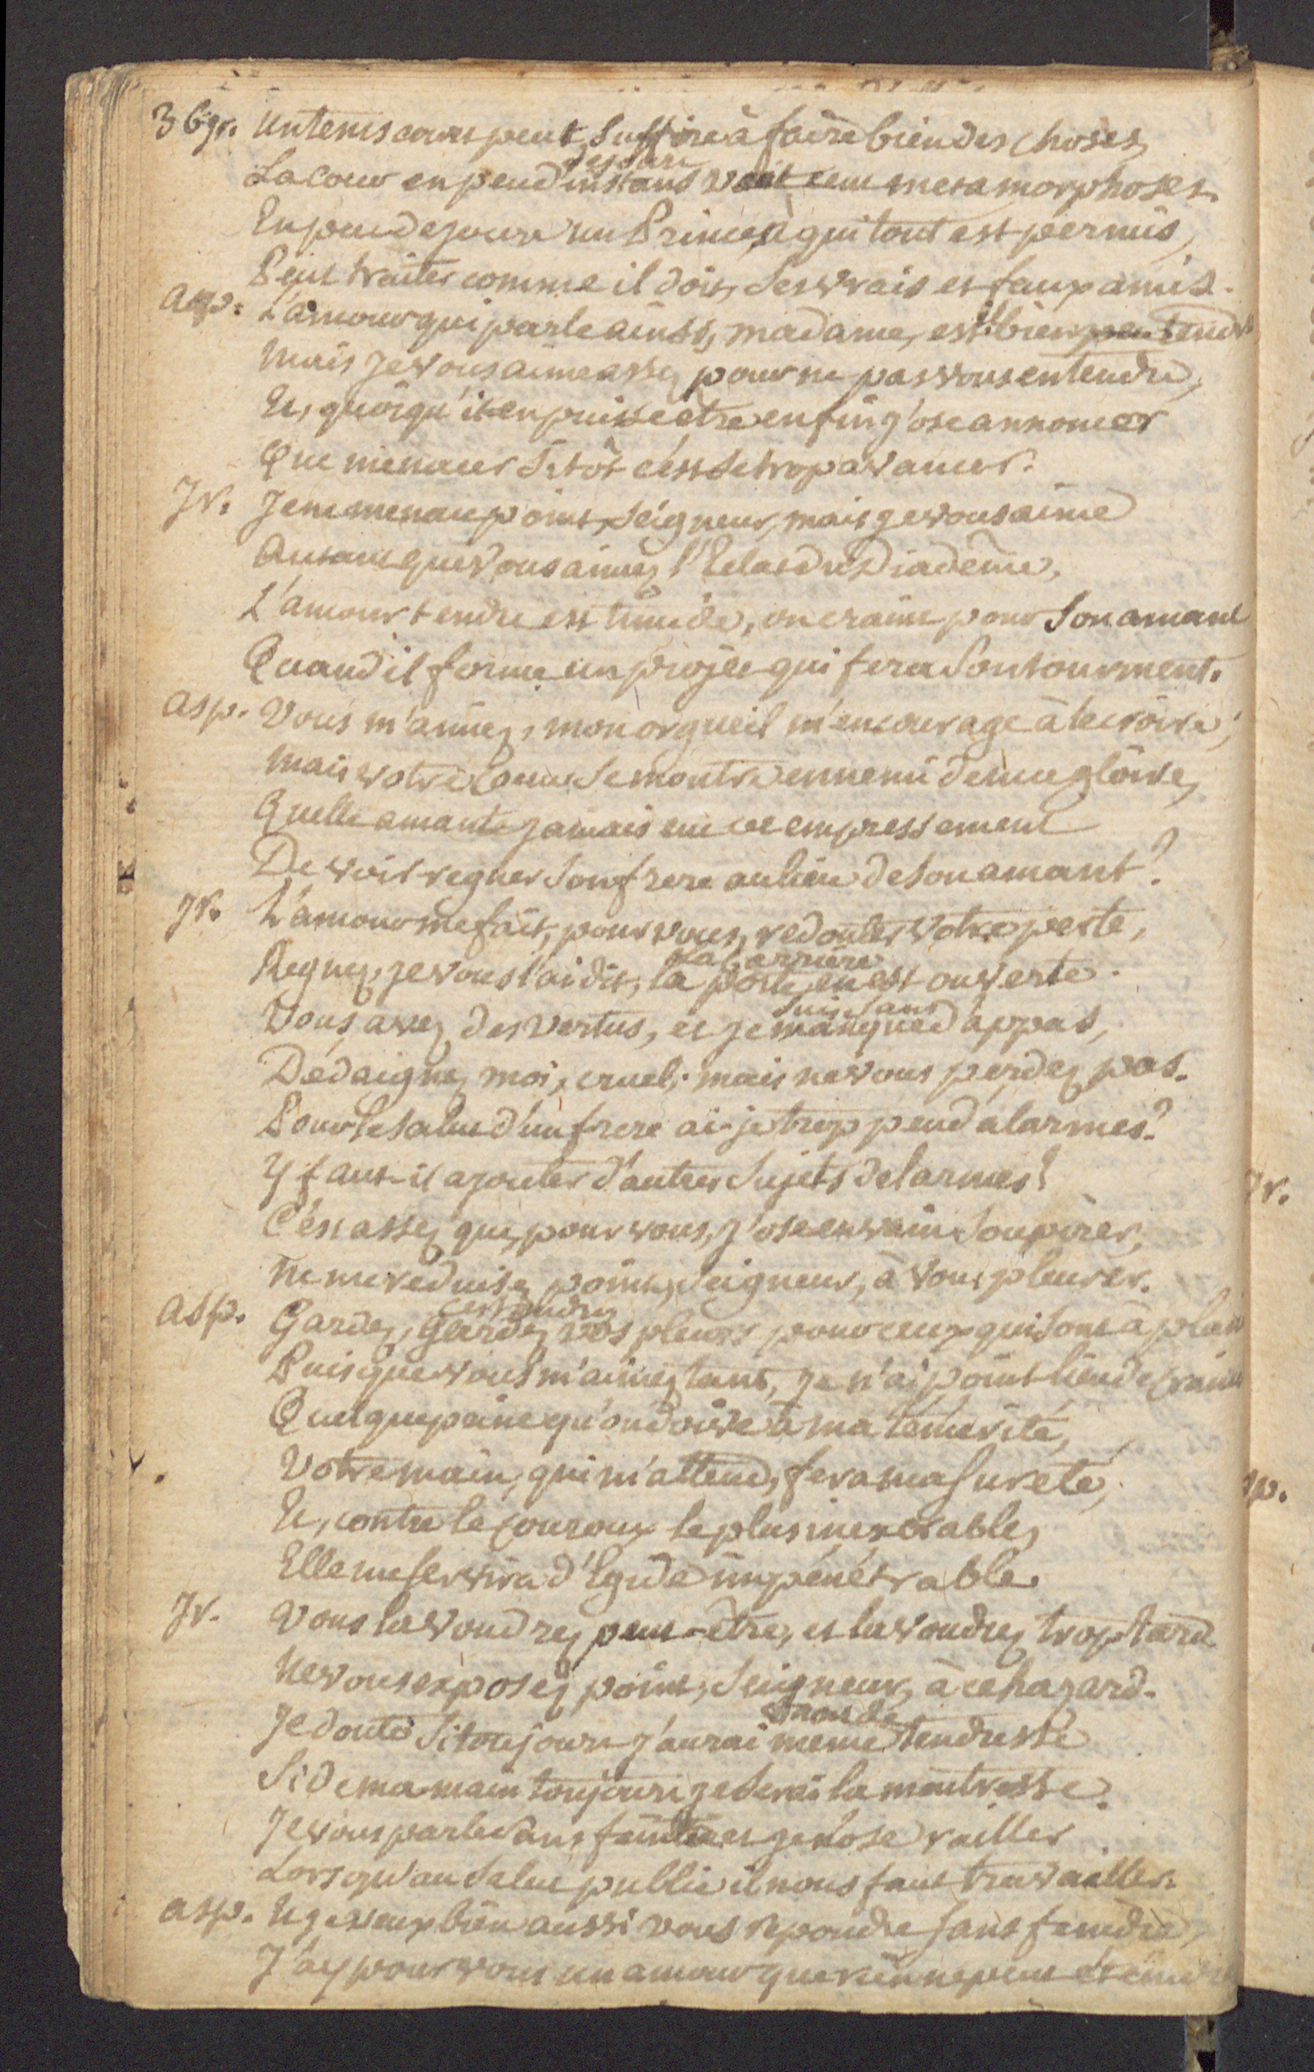 36 Jr. Un tems court peut suffire à faire bien des choses,
des sors
La cour en peu d'instans voit cent metamorphoses.
En peu de jours un Prince, à qui tout est permis,
Peut traiter comme il doit, ses vrais et faux amis.
Asp. L'amour qui parle ainsi, madame, est-il bien peu tendre
Mais je vous aime assez pour ne pas vous entendre,
Et, quoiqu'il en puisse être enfin j'ose annoncer
Que menacer sitôt c'est se trop avancer.
Jr. Je ne menace point, Seigneur, mais je vous aime
Autant que vous aimez l'Eclat du Diadême,
L'amour tendre est timide, on craint pour son amant
Quand il forme un projet qui fera son tourment.
Asp. Vous m'aimez, mon orgueil m'encourage à le croire;
Mais votre coeur se montre ennemi de ma gloire,
Quelle amante jamais eut cet empressement
De voir regner son frere au lieu de son amant?
Jr. L'amour me fait, pour vous, redouter votre perte,
la carriere
Regnez, je vous l'ai dit, la porte en est ouverte.
suis sans
Vous avez des vertus, et je manque d'appas,
Dédaignez moi, cruel; mais ne vous perdez pas.
Pour le salut d'un frere ai-je trop peu d'alarmes?
Y faut-il ajouter d'autres sujets de larmes?
C'est assez que, pour vous, j'ose en vain soupirer,
Ne me reduisez point, Seigneur, à vous pleurer.
Asp. Gardez, gardez vos pleurs pour ceux qui sont à plain
Puisque vous m'aimez tant, je n'ai point lieu de crain
Quelque peine qu'on doive à ma témérité,
Votre main, qui m'attend, fera ma sureté,
Et, contre le couroux le plus inexorable,
Elle me servira d'Egide impénétrable.
Jr. Vous la voudrez peut-être, et la voudrez trop tard
Ne vous exposez point, Seigneur, à ce hazard.
Je doute si toujours j'aurai même tendresse
Si de ma main toujours je serai la maitresse.
Je vous parle sans feinte et je n'ose railler
Lorsqu'au salut public il nous faut travailler.
Asp. Et je veux bien aussi vous repondre sans feindre,
J'ay pour vous un amour que rien ne peut éteindre
Jr.
sp.